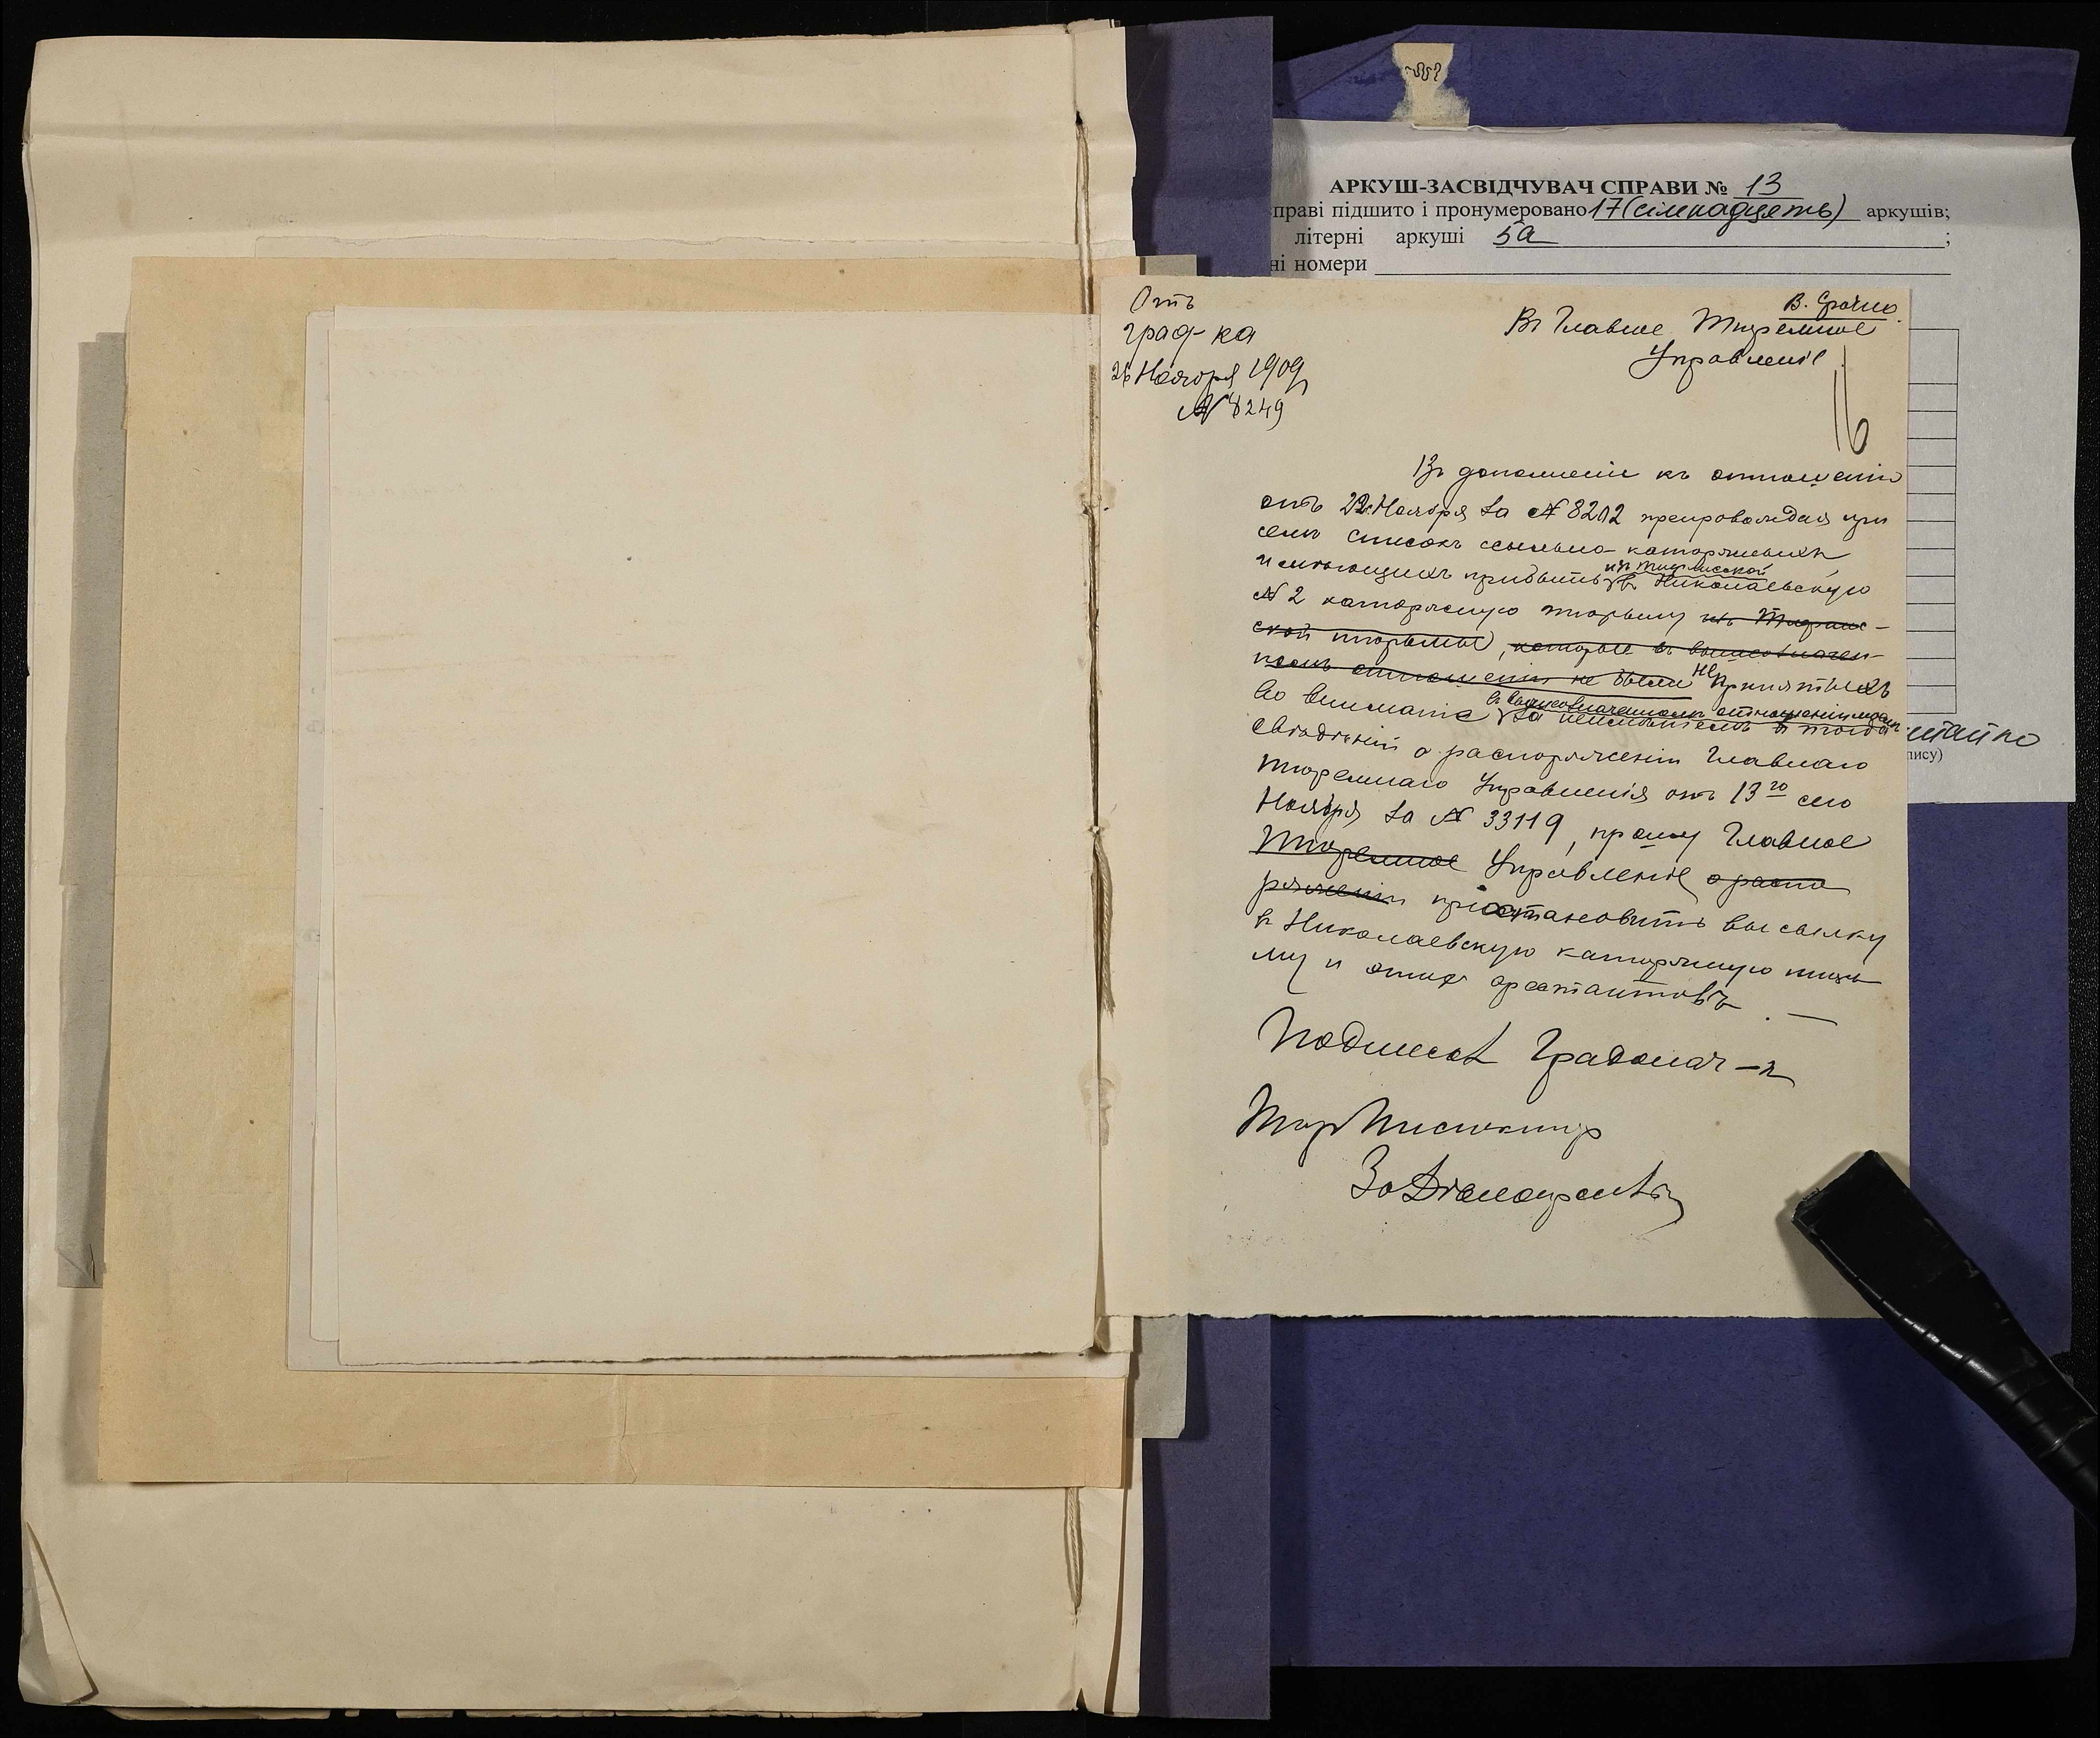 АРКУШ-ЗАСВІДЧУВАЧ СПРАВИ № 13
справі підшито і пронумеровано 17 (сімнадцять) аркушів;
літерні аркуші 5а ;
ні номери
пису)
Отъ
град-ка
26 Ноября 1909
№ 8249
В. Срочно.
Въ Главное Тюремное
Управленіе
16
Въ дополненіе къ отношенію
отъ 22 Ноября за № 8202 препровождая при
семъ списокъ ссыльно-каторжныхъ
имѣющихъ прибыть изъ Тифлисской въ Николаевскую
№ 2 каторжную тюрьму изъ Тифлис-
ской тюрьмы, которые въ вышеозначен-
номъ отношеніи не были не принятыхъ
во вниманіе въ вышеозначенномъ отношеніи моемъ за неимѣніемъ тогда
свѣдѣній о распоряженіи Главнаго
Тюремнаго Управленія отъ 13го сего
Ноября за № 33119, прошу Главное
Тюремное Управленіе о распо
ряженіи пріостановить высылку
въ Николаевскую каторжную тюрь
му и этихъ арестантовъ.—
Подписалъ Градонач-къ
Тюр Инспекторъ